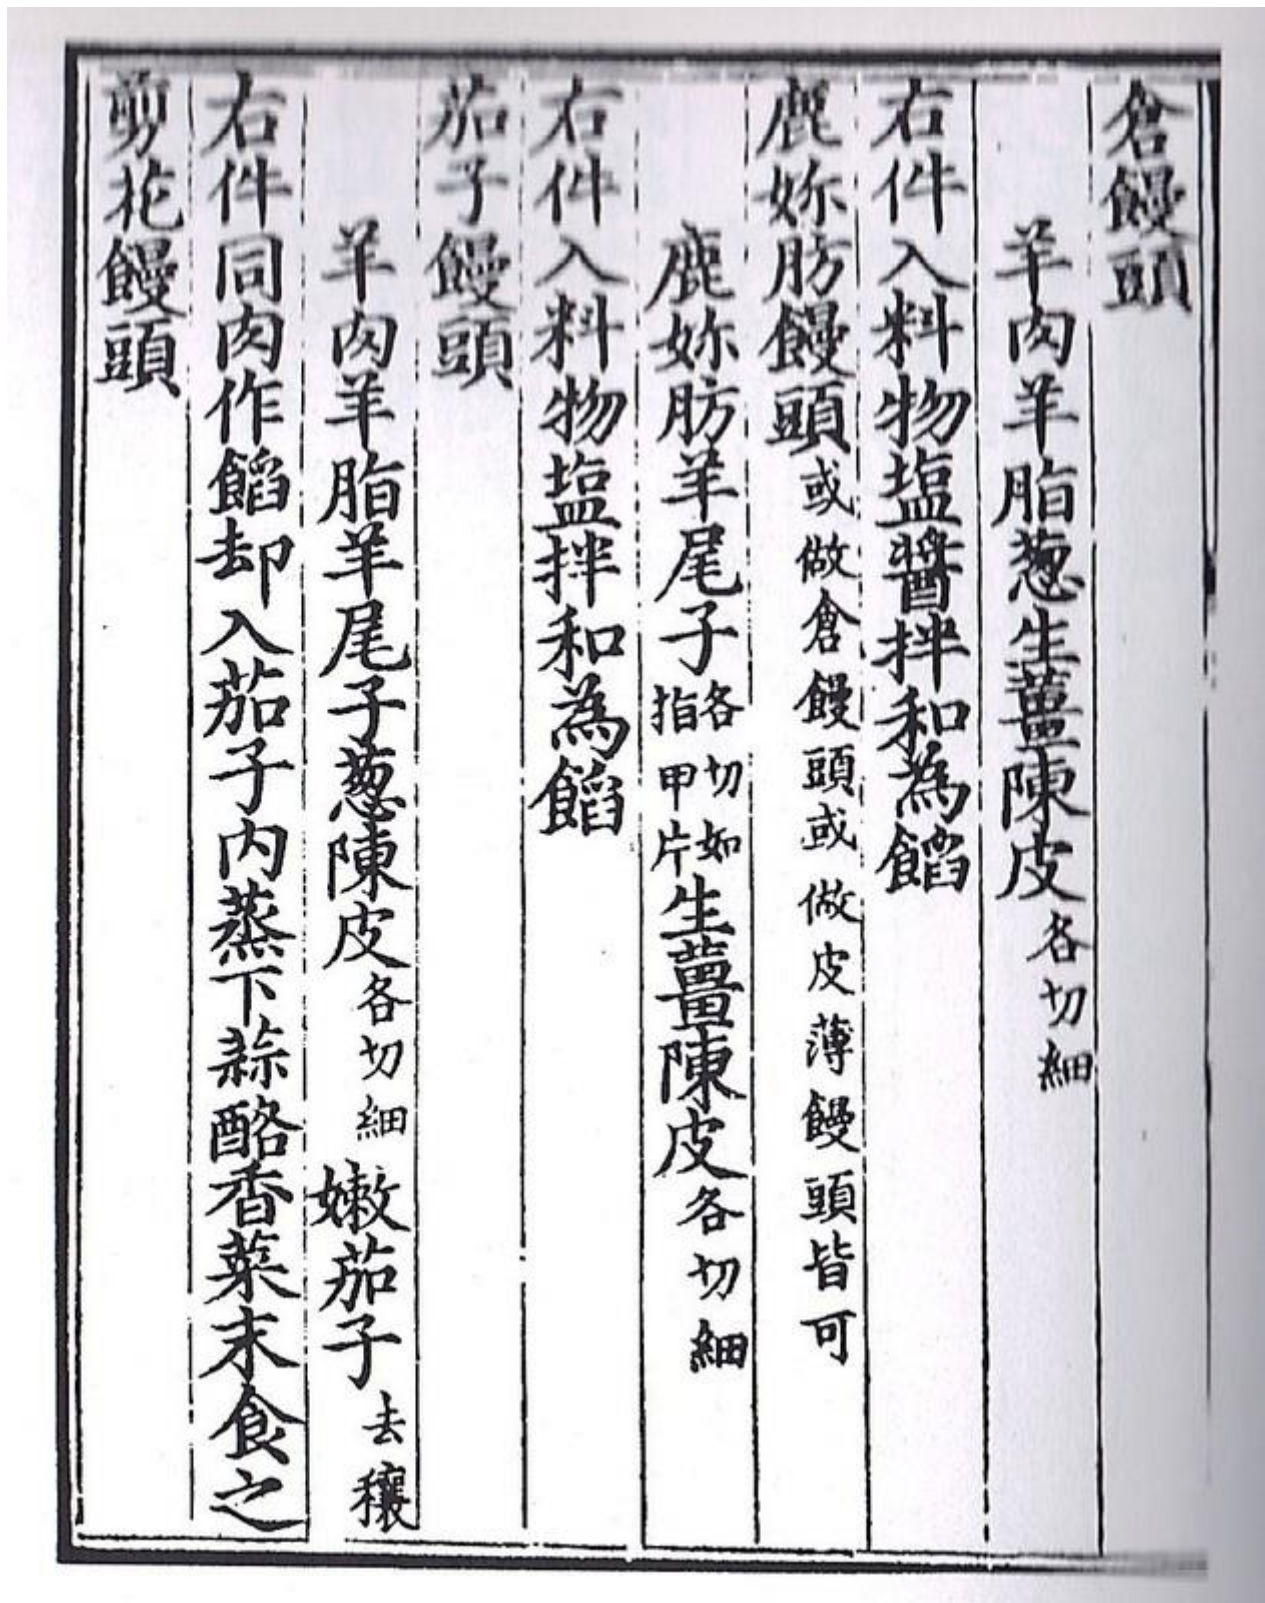 倉饅頭
羊肉羊脂葱生薑陳皮各切細
右件入料物塩醬拌和為餡
鹿妳肪饅頭或做倉饅頭或做皮薄饅頭皆可
鹿妳肪羊尾子各切如指甲片生薑陳皮各切細
右件入料物塩拌和為餡
茄子饅頭
羊肉羊脂羊尾子葱陳皮各切細嫩茄子去穰
右件同肉作餡却入茄子内蒸下蒜酪香菜末食之
剪花饅頭